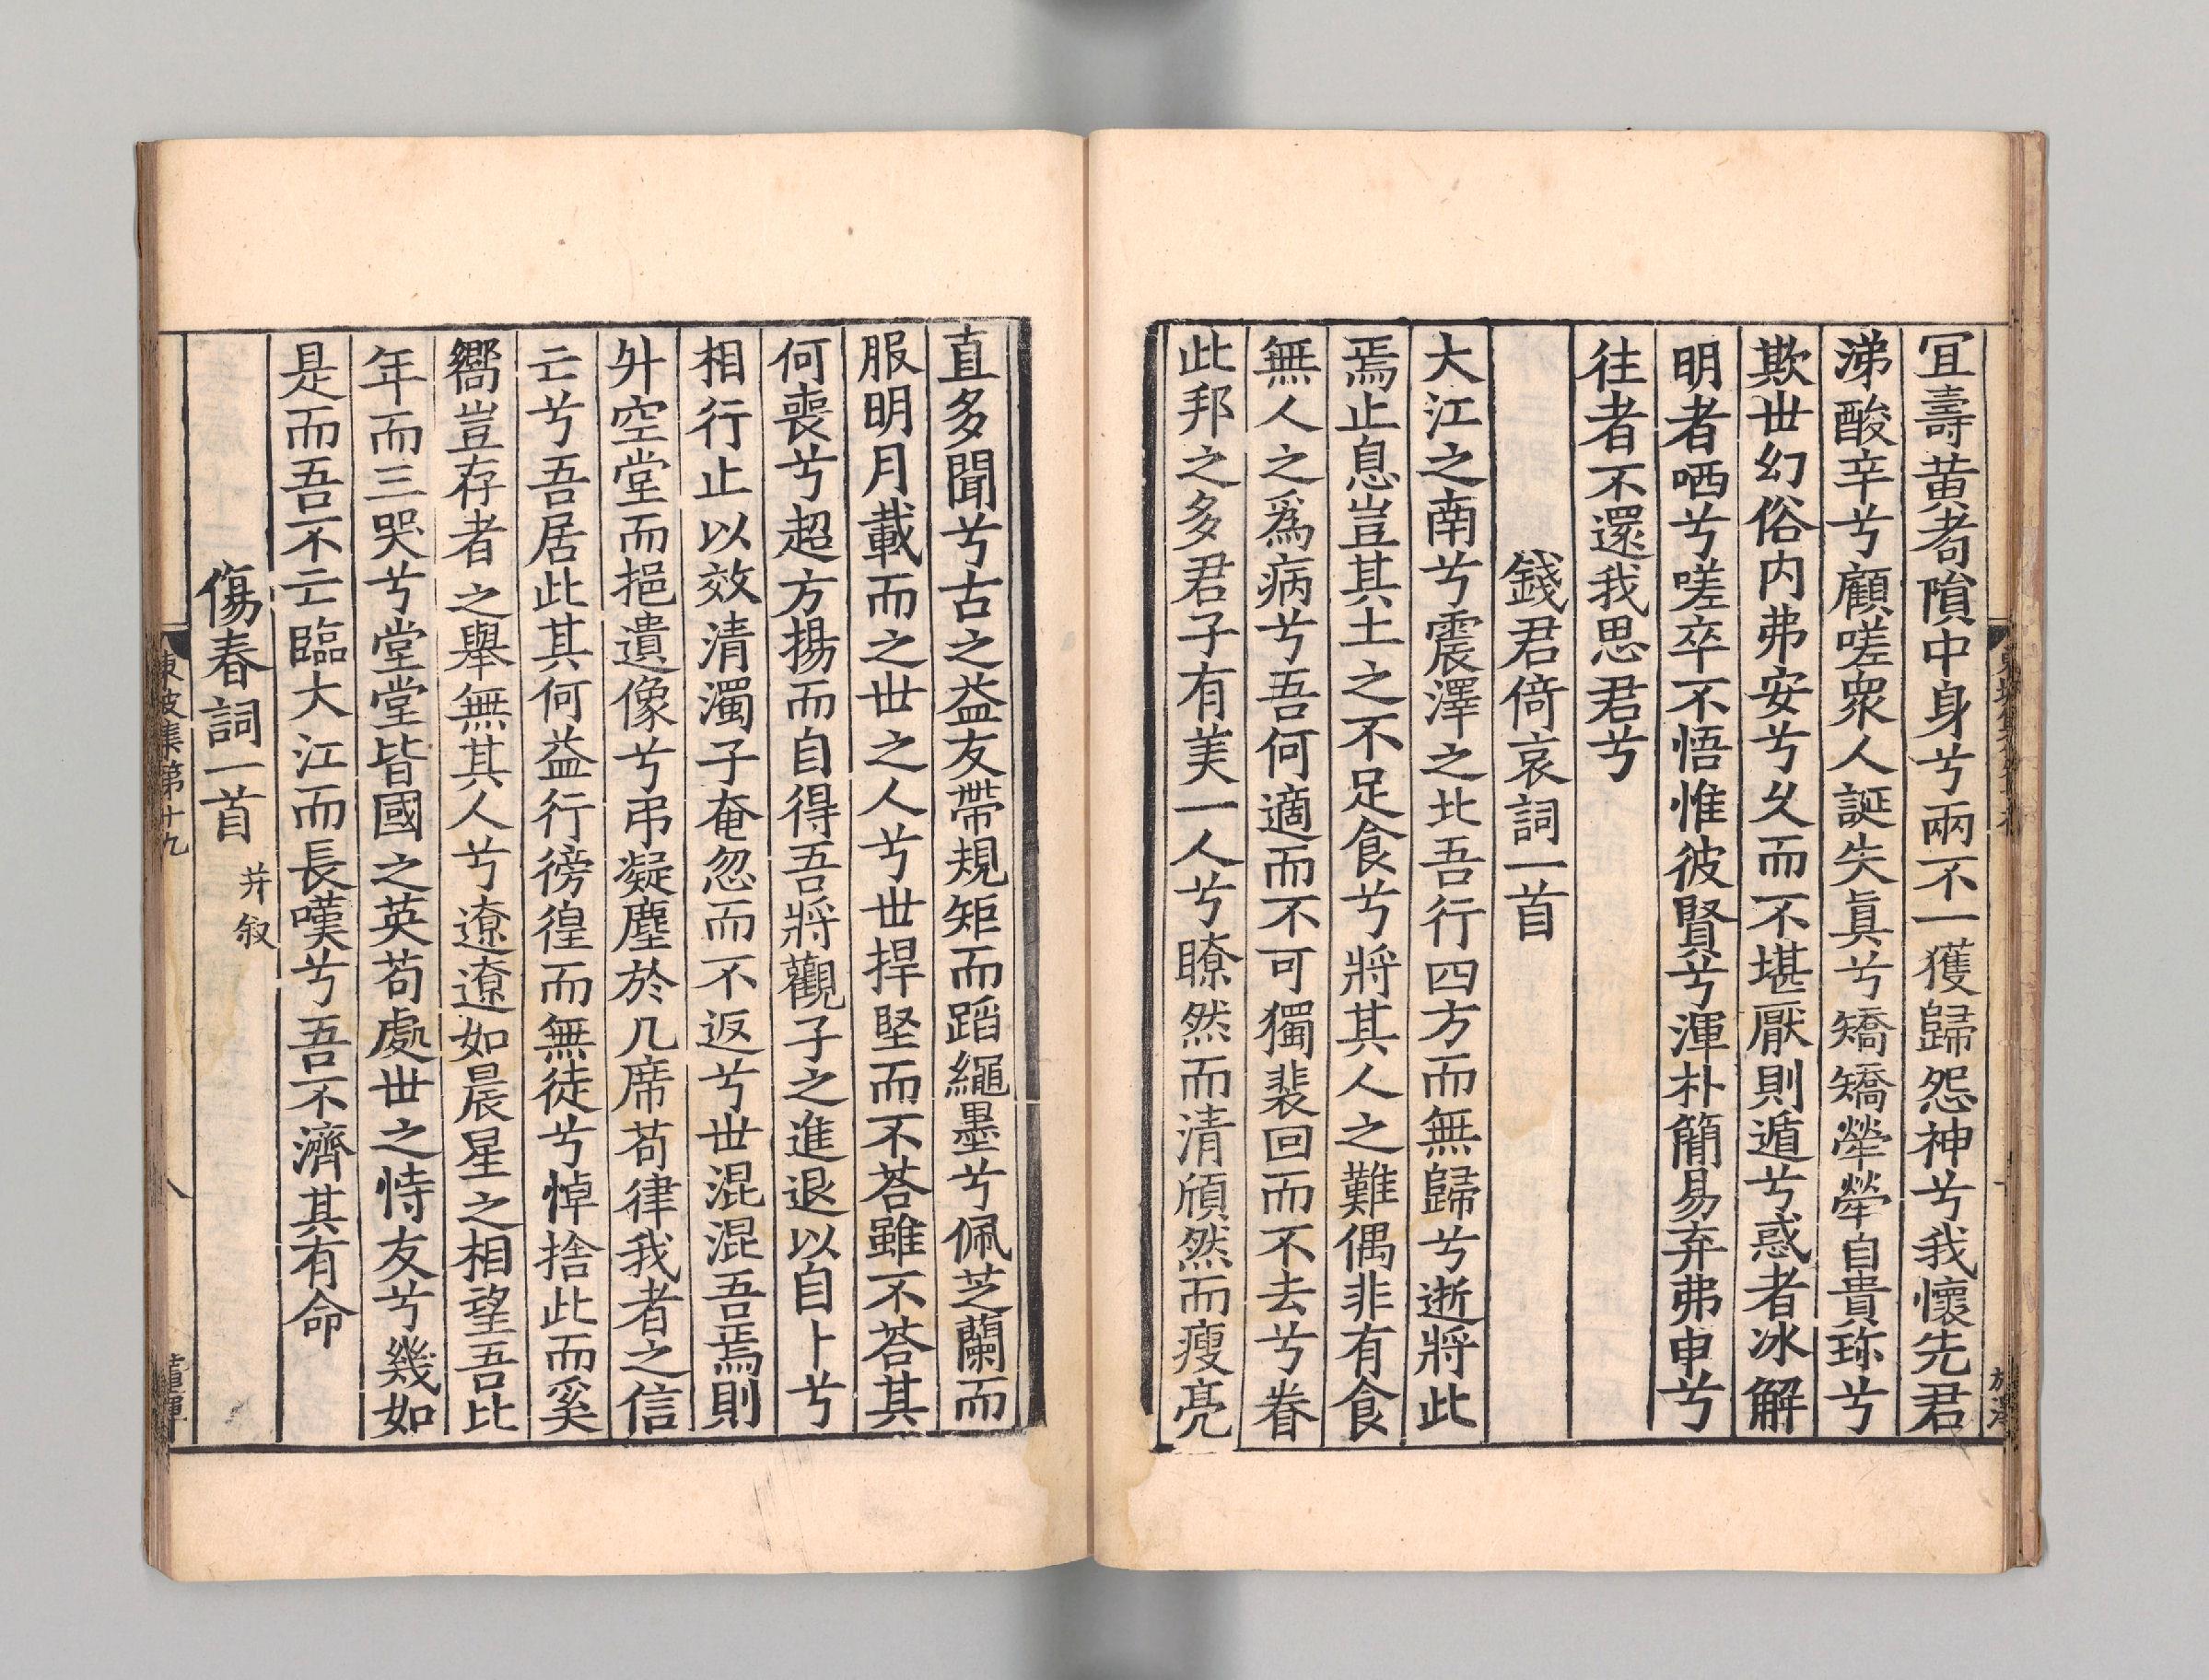 冝壽黃耇隕中身兮兩不一獲歸怨神兮我懷先君
涕酸辛兮顧嗟衆人誕失眞兮矯矯犖犖自貴珎兮
欺丗幻俗内弗安兮乆而不堪厭則遁兮惑者冰解
明者哂兮嗟卒不悟惟彼賢兮渾朴簡易弃弗申兮
往者不還我思君兮
錢君倚哀詞一首
大江之南兮震澤之北吾行四方而無歸兮逝將此
焉止息豈其土之不足食兮將其人之難偶非有食
無人之爲病兮吾何適而不可獨裴回而不去兮眷
此邦之多君子有美一人兮瞭然而清頎然而瘦亮
直多聞兮古之益友帶規矩而蹈繩墨兮佩芝蘭而
服明月載而之世之人兮丗捍堅而不荅雖不荅其
何喪兮超方揚而自得吾將觀子之進退以自卜兮
相行止以效清濁子奄忽而不返兮丗混混吾焉則
升空堂而挹遺像兮弔凝塵於几席苟律我者之信
亡兮吾居此其何益行徬徨而無徒兮悼捨此而奚
嚮豈存者之舉無其人兮遼遼如晨星之相望吾比
年而三哭兮堂堂皆國之英苟處丗之恃友兮幾如
是而吾不亡臨大江而長嘆兮吾不濟其有命
傷春詞一首 并叙
東坡集第十九
八